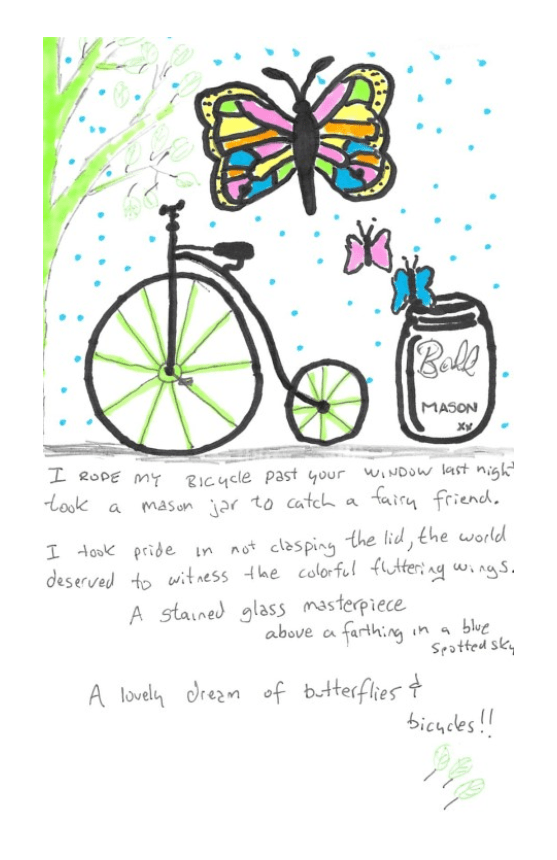 Ball
MASON
xx
I RODE MY BICYCLE PAST your WINDOW last nigh
took a mason jar to catch a fairy friend.
I took pride in not clasping the lid, the world
deserved to witness the colorful fluttering wings.
A stained glass masterpiece
above a farthing in a blue
spotted sky
A lovely dream of butterflies &
bicycles!!